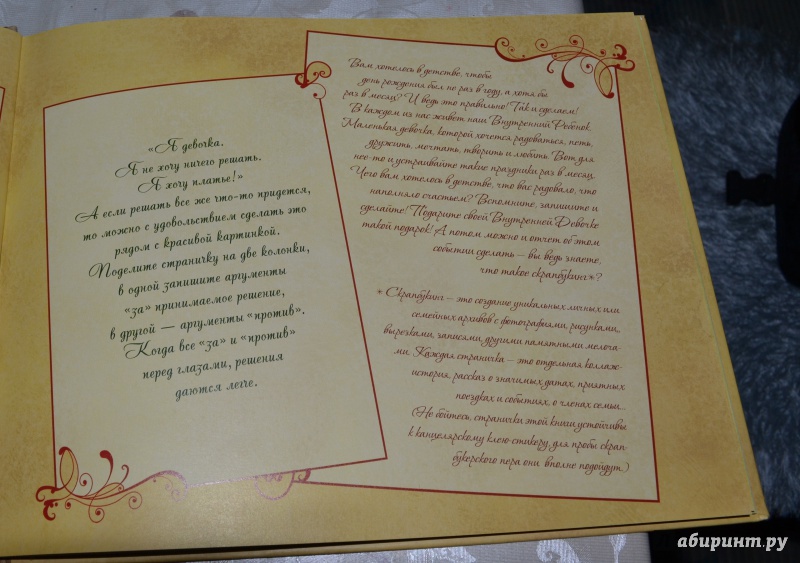 «Я девочка.
Я не хочу ничего решать.
Я хочу платье!»
А если решать все же что-то придется,
то можно с удовольствием сделать это
рядом с красивой картинкой.
Поделите страничку на две колонки,
в одной запишите аргументы
«за» принимаемое решение,
в другой — аргументы «против».
Когда все «за» и «против»
перед глазами, решения
даются легче.
Вам хотелось в детстве, чтобы
день рождения был не раз в году, а хотя бы
раз в месяц? И ведь это правильно! Так и сделаем!
В каждом из нас живет наш Внутренний Ребенок.
Маленькая девочка, которой хочется радоваться, петь,
дружить, мечтать, творить и любить. Вот для
нее-то и устраивайте такие праздники раз в месяц.
Чего вам хотелось в детстве, что вас радовало, что
наполняло счастьем? Вспомните, запишите и
сделайте! Подарите своей Внутренней Девочке
такой подарок! А потом можно и отчет об этом
событии сделать — вы ведь знаете,
что такое скрапбукинг*?
* Скрапбукинг — это создание уникальных личных или
семейных архивов с фотографиями, рисунками,
вырезками, записями, другими памятными мелоча-
ми. Каждая страничка — это отдельная коллаж-
история, рассказ о значимых датах, приятных
поездках и событиях, о членах семьи...
(Не бойтесь, странички этой книги устойчивы
к канцелярскому клею-стикеру, для пробы скрап-
букерского пера они вполне подойдут.)
абиринт.ру